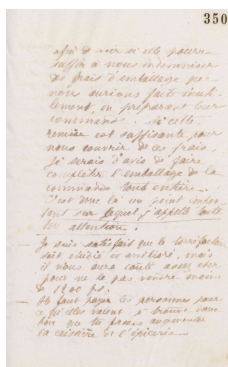 350
afin de voir si elle pourra
suffir à nous indemniser
des frais d'emballage que
nous aurions fait inuti-
lement, en préparant leur
commande. Si cette
remise est suffisante pour
nous couvrir de ces frais,
je serais d'avis de faire
compléter l'emballage de la
commande toute entière.
C'est donc là un point impor-
tant sur lequel j'appelle toute
ton attention.
Je suis satisfait que le torréfacteur
soit étudié et amélioré, mais
il nous aura coûté assez cher
pour ne le pas vendre moins
de 1200 fs.
Il faut payer les personnes pour
ce qu'elles valent, et trouve
bon que tu fasses augmenter
la caissière et l'épicerie